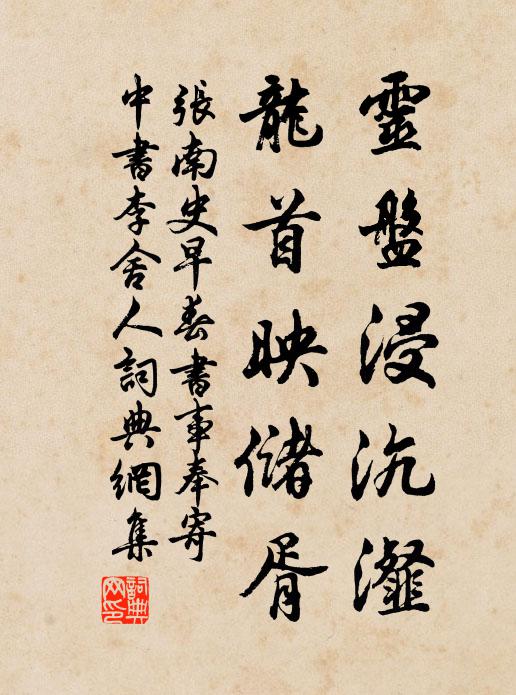 靈盤浸沆瀣
龍首映儲胥
張南史早春書事奉寄
中書李舍人詞典網集
詞典網印